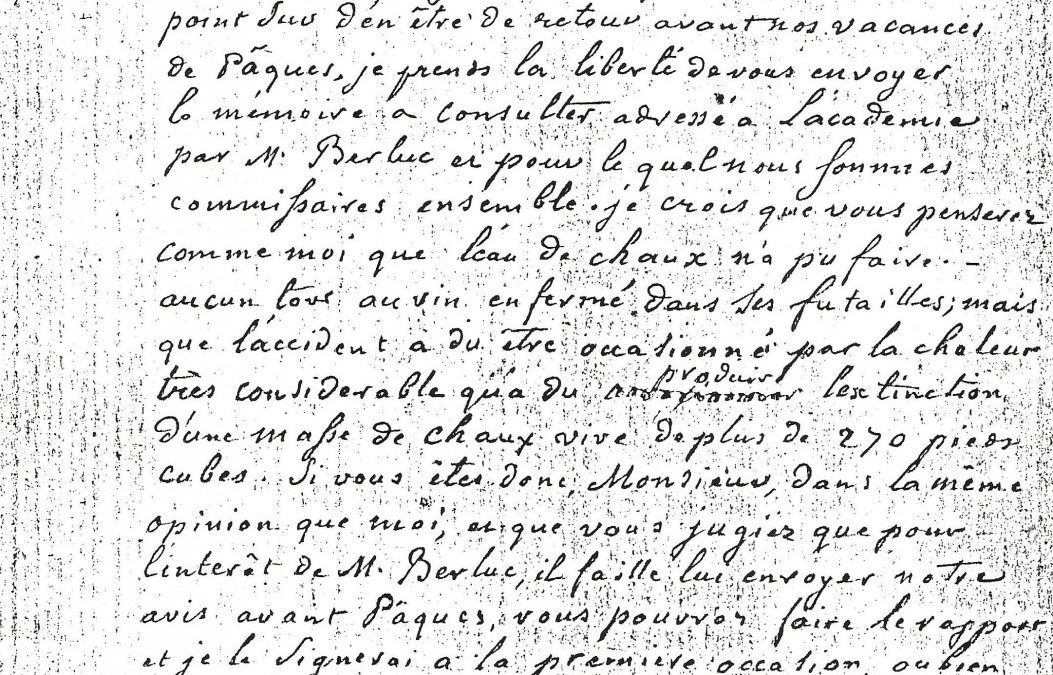 point sur d'en être de retour avant nos vacances
de Pâques, je prends la liberté de vous envoyer
le mémoire a consulter adressé a l'academie
par M. Berluc et pour le quel nous sommes
commissaires ensemble. je crois que vous penserez
comme moi que l'eau de chaux n'a pu faire. -
aucun tort au vin enfermé dans ses futailles; mais
que l'accident a du être occasionné par la chaleur
produire
très considerable qu'a du l'extinction
d'une masse de chaux vive de plus de 270 pieds
cubes. Si vous êtes donc, Monsieur, dans la même
opinion que moi, et que vous jugiez que pour
l'interêt de M. Berluc, il faille lui envoyer notre
avis avant Pâques, vous pouvrez faire le rapport
et je le signerai a la première occasion, ou bien